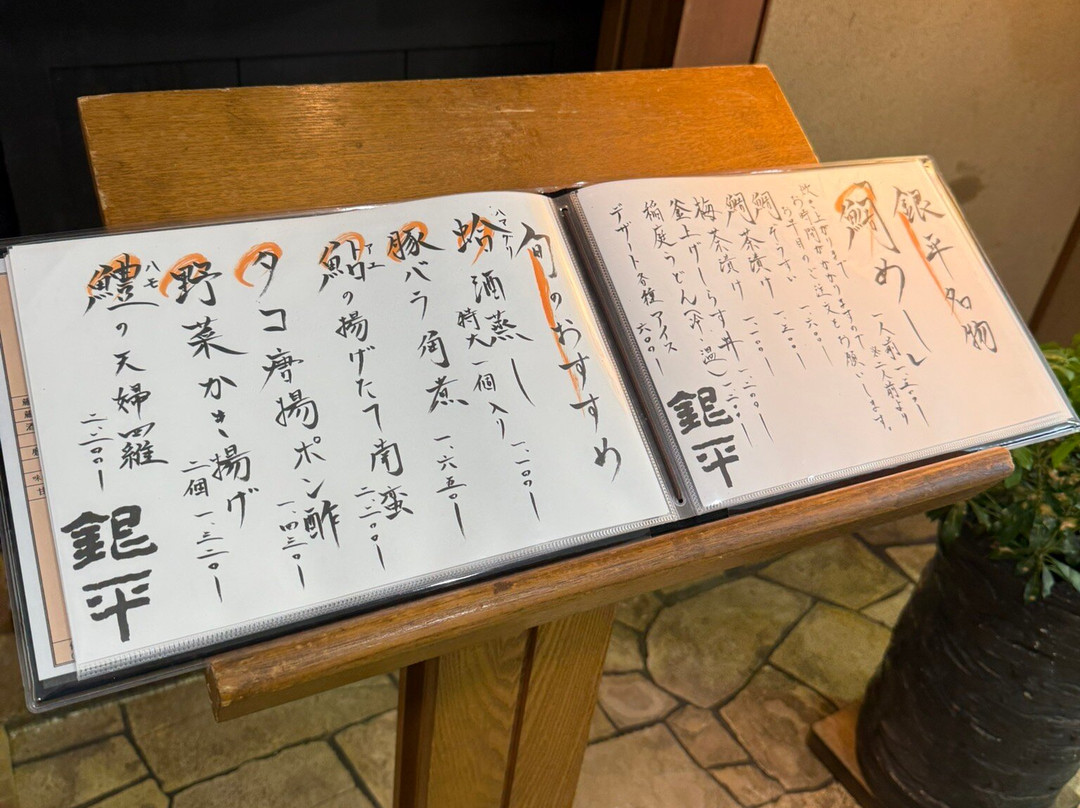 銀平名物
鯛めし
一人前一、五〇〇ー
(二人前より)
炊き上がりまで
お時間がかかりますので
お早目のご注文をお願いします。
鯛茶漬け 一、二〇〇ー
梅茶漬け
釜上げしらす丼 一、二〇〇ー
稲庭うどん(冷・温) 一、二〇〇ー
デザート各種 アイス 六〇〇ー
銀平
旬のおすすめ
ハマグリ
蛤酒蒸し
特大一個入り 一、一〇〇ー
豚バラ角煮 一、六五〇ー
鮎の揚げたて南蛮 二、二〇〇ー
タコ唐揚ポン酢 一、四三〇ー
野菜かき揚げ
二個 一、三二〇ー
ハモ
鱧の天婦羅
二、二〇〇ー
銀平